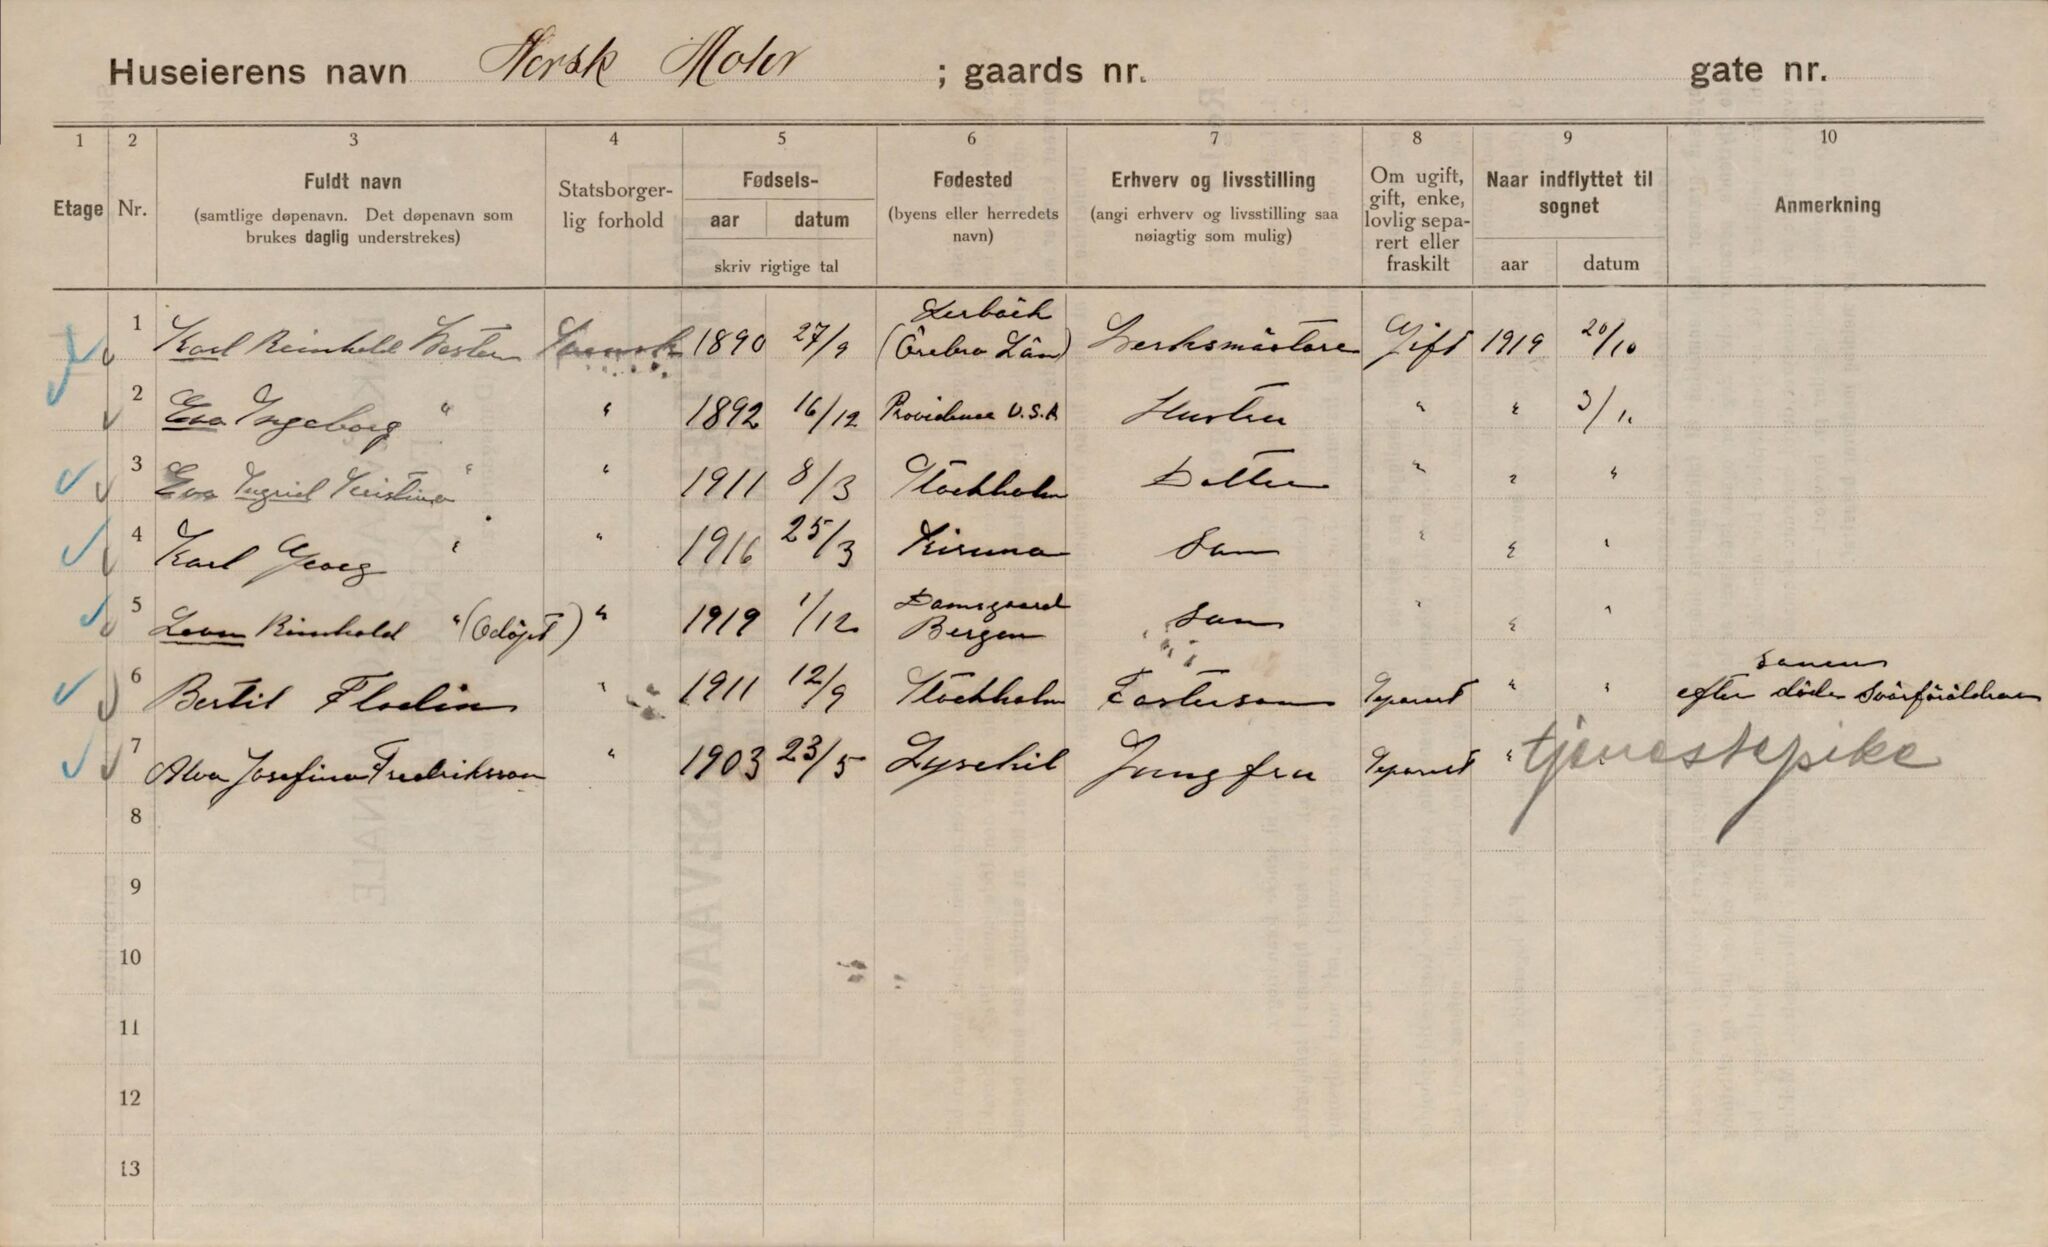 Huseierens navn Norsk Motor ; gaards nr. gate nr.
1 2 3 4 5 6 7 8 9 10
Etage Nr. Fuldt navn (samtlige døpenavn. Det døpenavn som brukes daglig understrekes) Statsborgerlig forhold Fødsels- aar datum skriv rigtige tal Fødested (byens eller herredets navn) Erhverv og livsstilling (angi erhverv og livsstilling saa nøiagtig som mulig) Om ugift, gift, enke, lovlig separert eller fraskilt Naar indflyttet til sognet aar datum Anmerkning
1 Karl Reinhold Westen Svensk 1890 27/9 Lerbäck (Örebro Län) Verksmästare Gift 1919 20/10
2 Eva Ingeborg " " 1892 16/12 Providence U.S.A Hustru " " 3/11
3 Eva Ingrid Kristina " " 1911 8/3 Stockholm Dotter " " "
4 Karl Georg " " 1916 25/3 Kiruna Son " " "
5 Reinhold " (Odöpt) " 1919 1/12 Damsgaard Bergen Son " " "
6 Bertil Flodin " 1911 12/9 Stockholm Fosterson " " sonen
efter döde Svärföräldrar
7 Alva Josefina Fredriksson " 1903 23/5 Lysekil Jungfru " tjenestepike
8
9
10
11
12
13